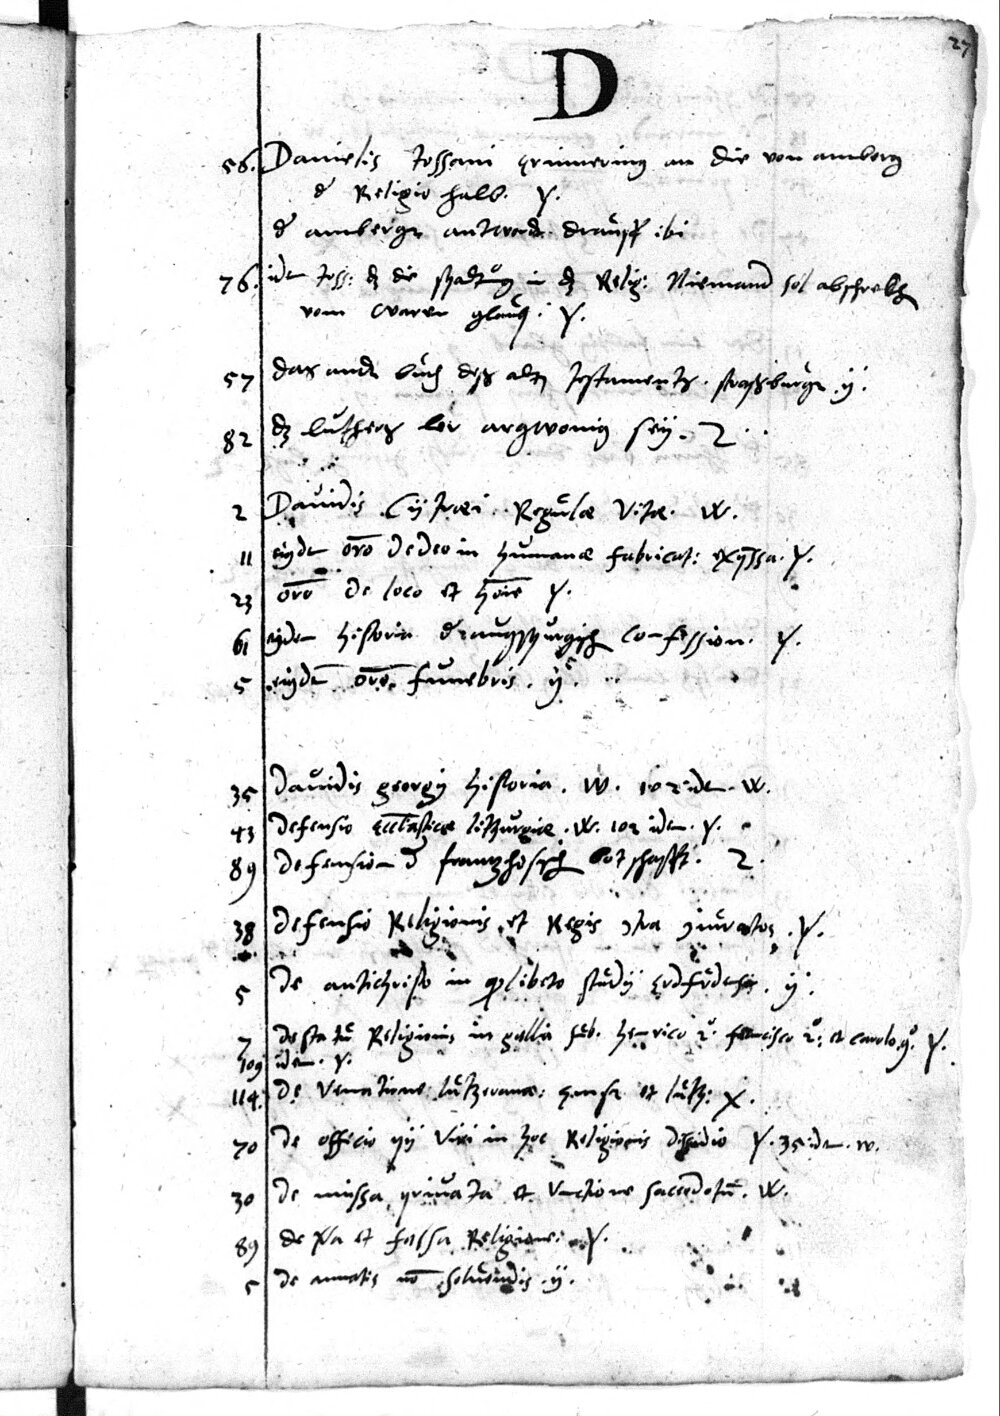 27
D
56. Danielis Tossani Erinnering an die von amberg
d Religio halb. Y.
d amberger antword drauff ibi
76. idem Toss: dz die spaltug in dz Relig: Niemand sol abschrekh
vom waren glaub: Y.
57 das ander buch deß alt Testaments. straßburgr ÿ.
82 dz luthers ler argwonig seÿ. 2
2 Dauidis Cÿtræi Regulæ Vitæ. W.
11 eiusdem oro de deo in humanæ fabricat: Y.
23 oro de loco et Y.
61 eiusdem historia d augspurgisch Confession. Y.
5 eiusdem oro funebris. ÿ.
35 dauidis georgÿ historia. W. 102 idem. W.
43 defensio Eccl̄asticæ liturgiæ. W. 102 idem. Y.
89 defension d frantzhosisch botschafft. 2.
38 defensio Religionis et Regis 9tra 9iuratos. Y.
5 de antichristo in quolibeto studÿ Erdfurdensis. ÿ.
7 de statu Religionis in gallia sub. henrico 2o. francisco 2o: et carolo 9o. Y.
109 idem. Y.
114. de Venatione lutherana: Y.
70 de officio pij Viri in hoc Religionis dissidio Y. 35 idem. W.
30 de missa priuata et Vnctione sacerdotu. W.
89 de Va et falsa Religione. Y.
5 de annatis no soluendis. ÿ.